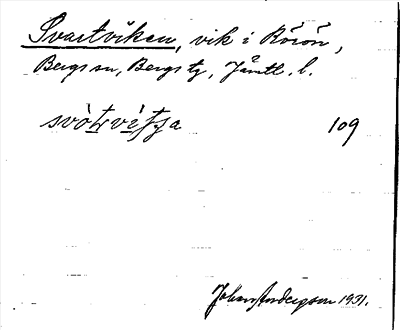 Svartviken, vik i Rörön,
Bergs sn, Bergs tg, Jämtl. l.
109
Johan Anderson 1931.